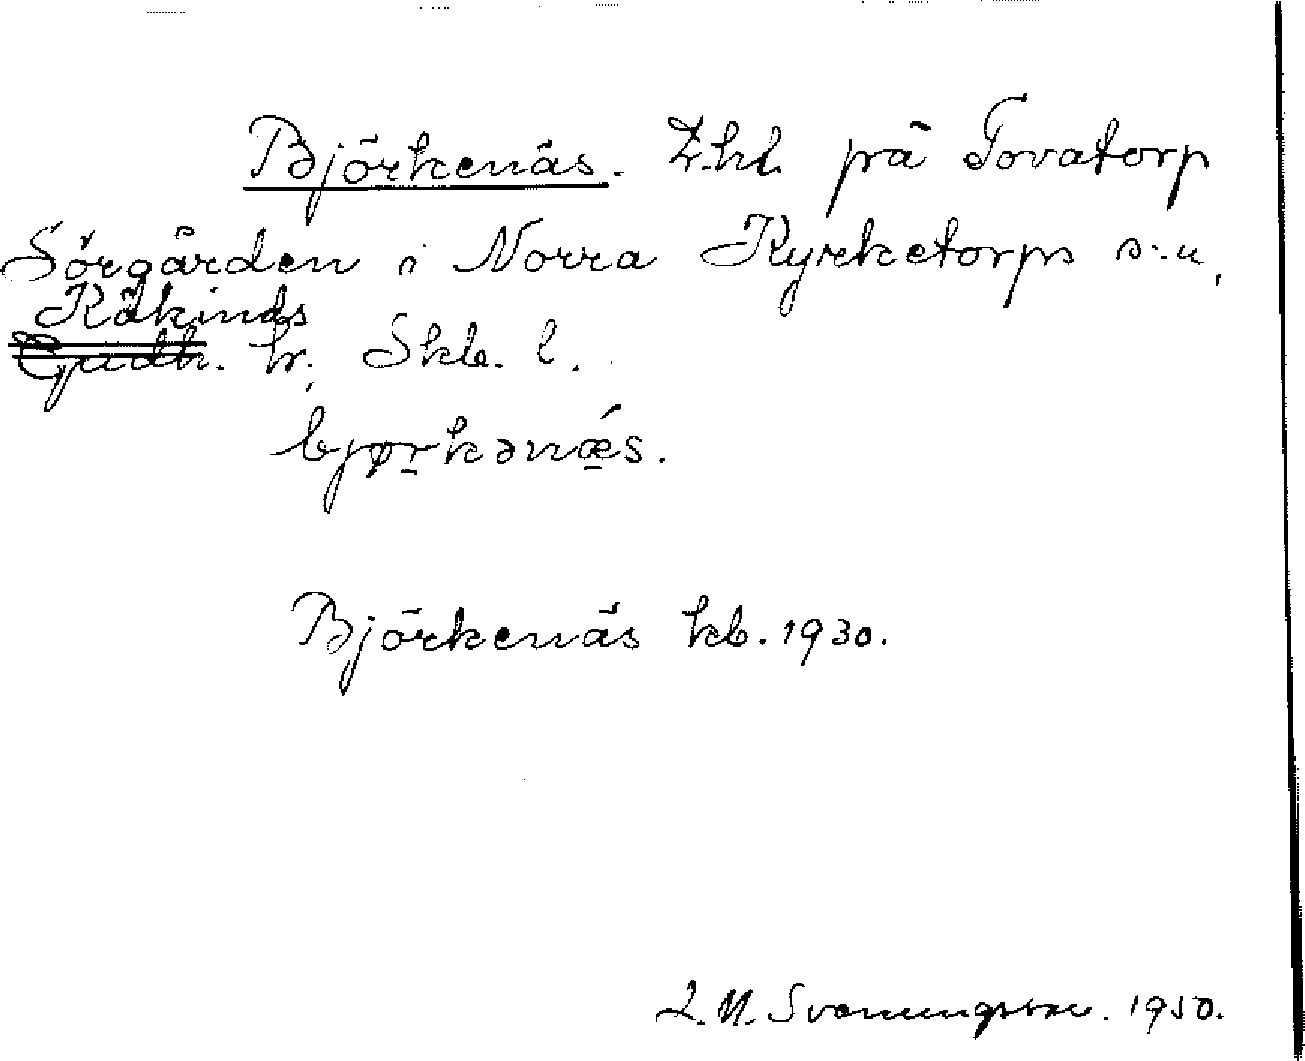 Björkenäs. Lht. på Tovatorp
Sörgården i Norra Kyrketorps s:n,
Kåkinds
Gudh. hr. Skb. l.
bjørkənǽs.
Björkenäs kb. 1930.
L. M. Svanungsson. 1950.